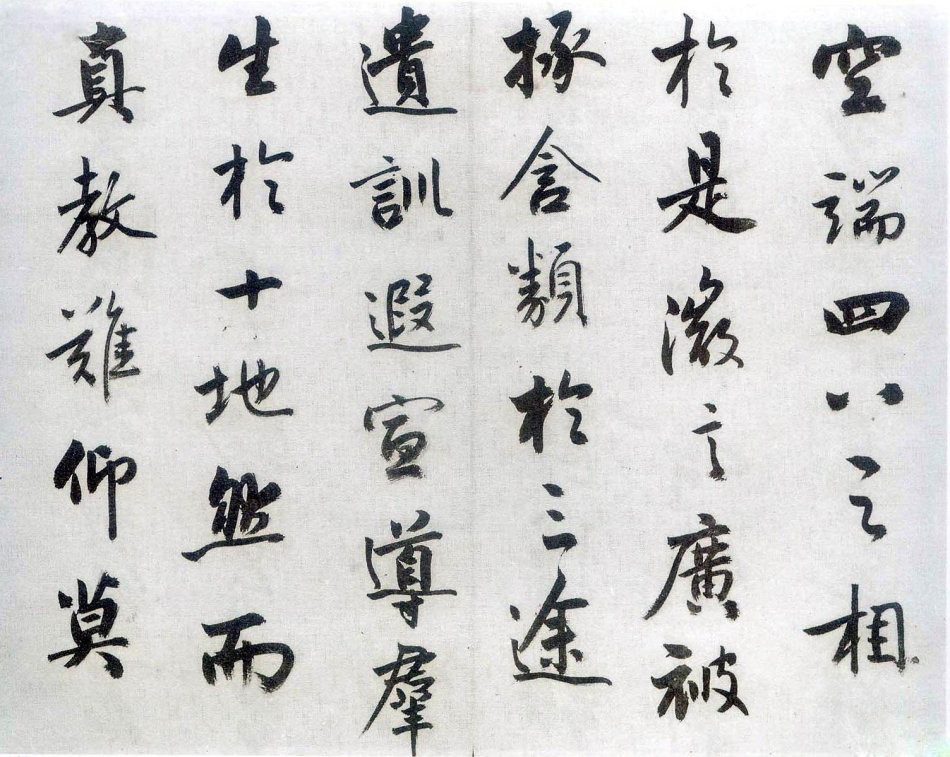 空端四八之相
於是微言廣被
拯含類於三途
遺訓遐宣導羣
生於十地然而
真教難仰莫